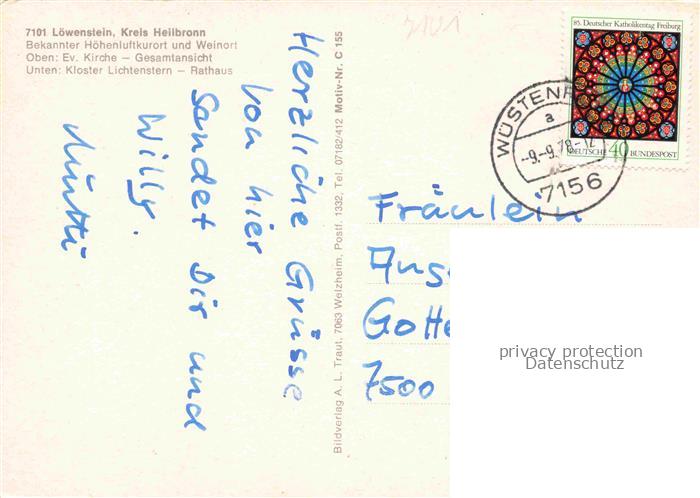 7101 Löwenstein, Kreis Heilbronn
Bekannter Höhenluftkurort und Weinort
Oben: Ev. Kirche – Gesamtansicht
Unten: Kloster Lichtenstern – Rathaus
Herzliche Grüsse
von hier
Sandet Dir und
Willy.
Mutti
Bildverlag A. L. Traut, 7063 Welzheim, Postf. 1332, Tel. 07182/412 Motiv-Nr. C 155
7101
85. Deutscher Katholikentag Freiburg
DEUTSCHE 40 BUNDESPOST
WÜSTENR
a
-9.-9.78-12
7156
Fräulein
Ang
Gotte
7500
privacy protection
Datenschutz